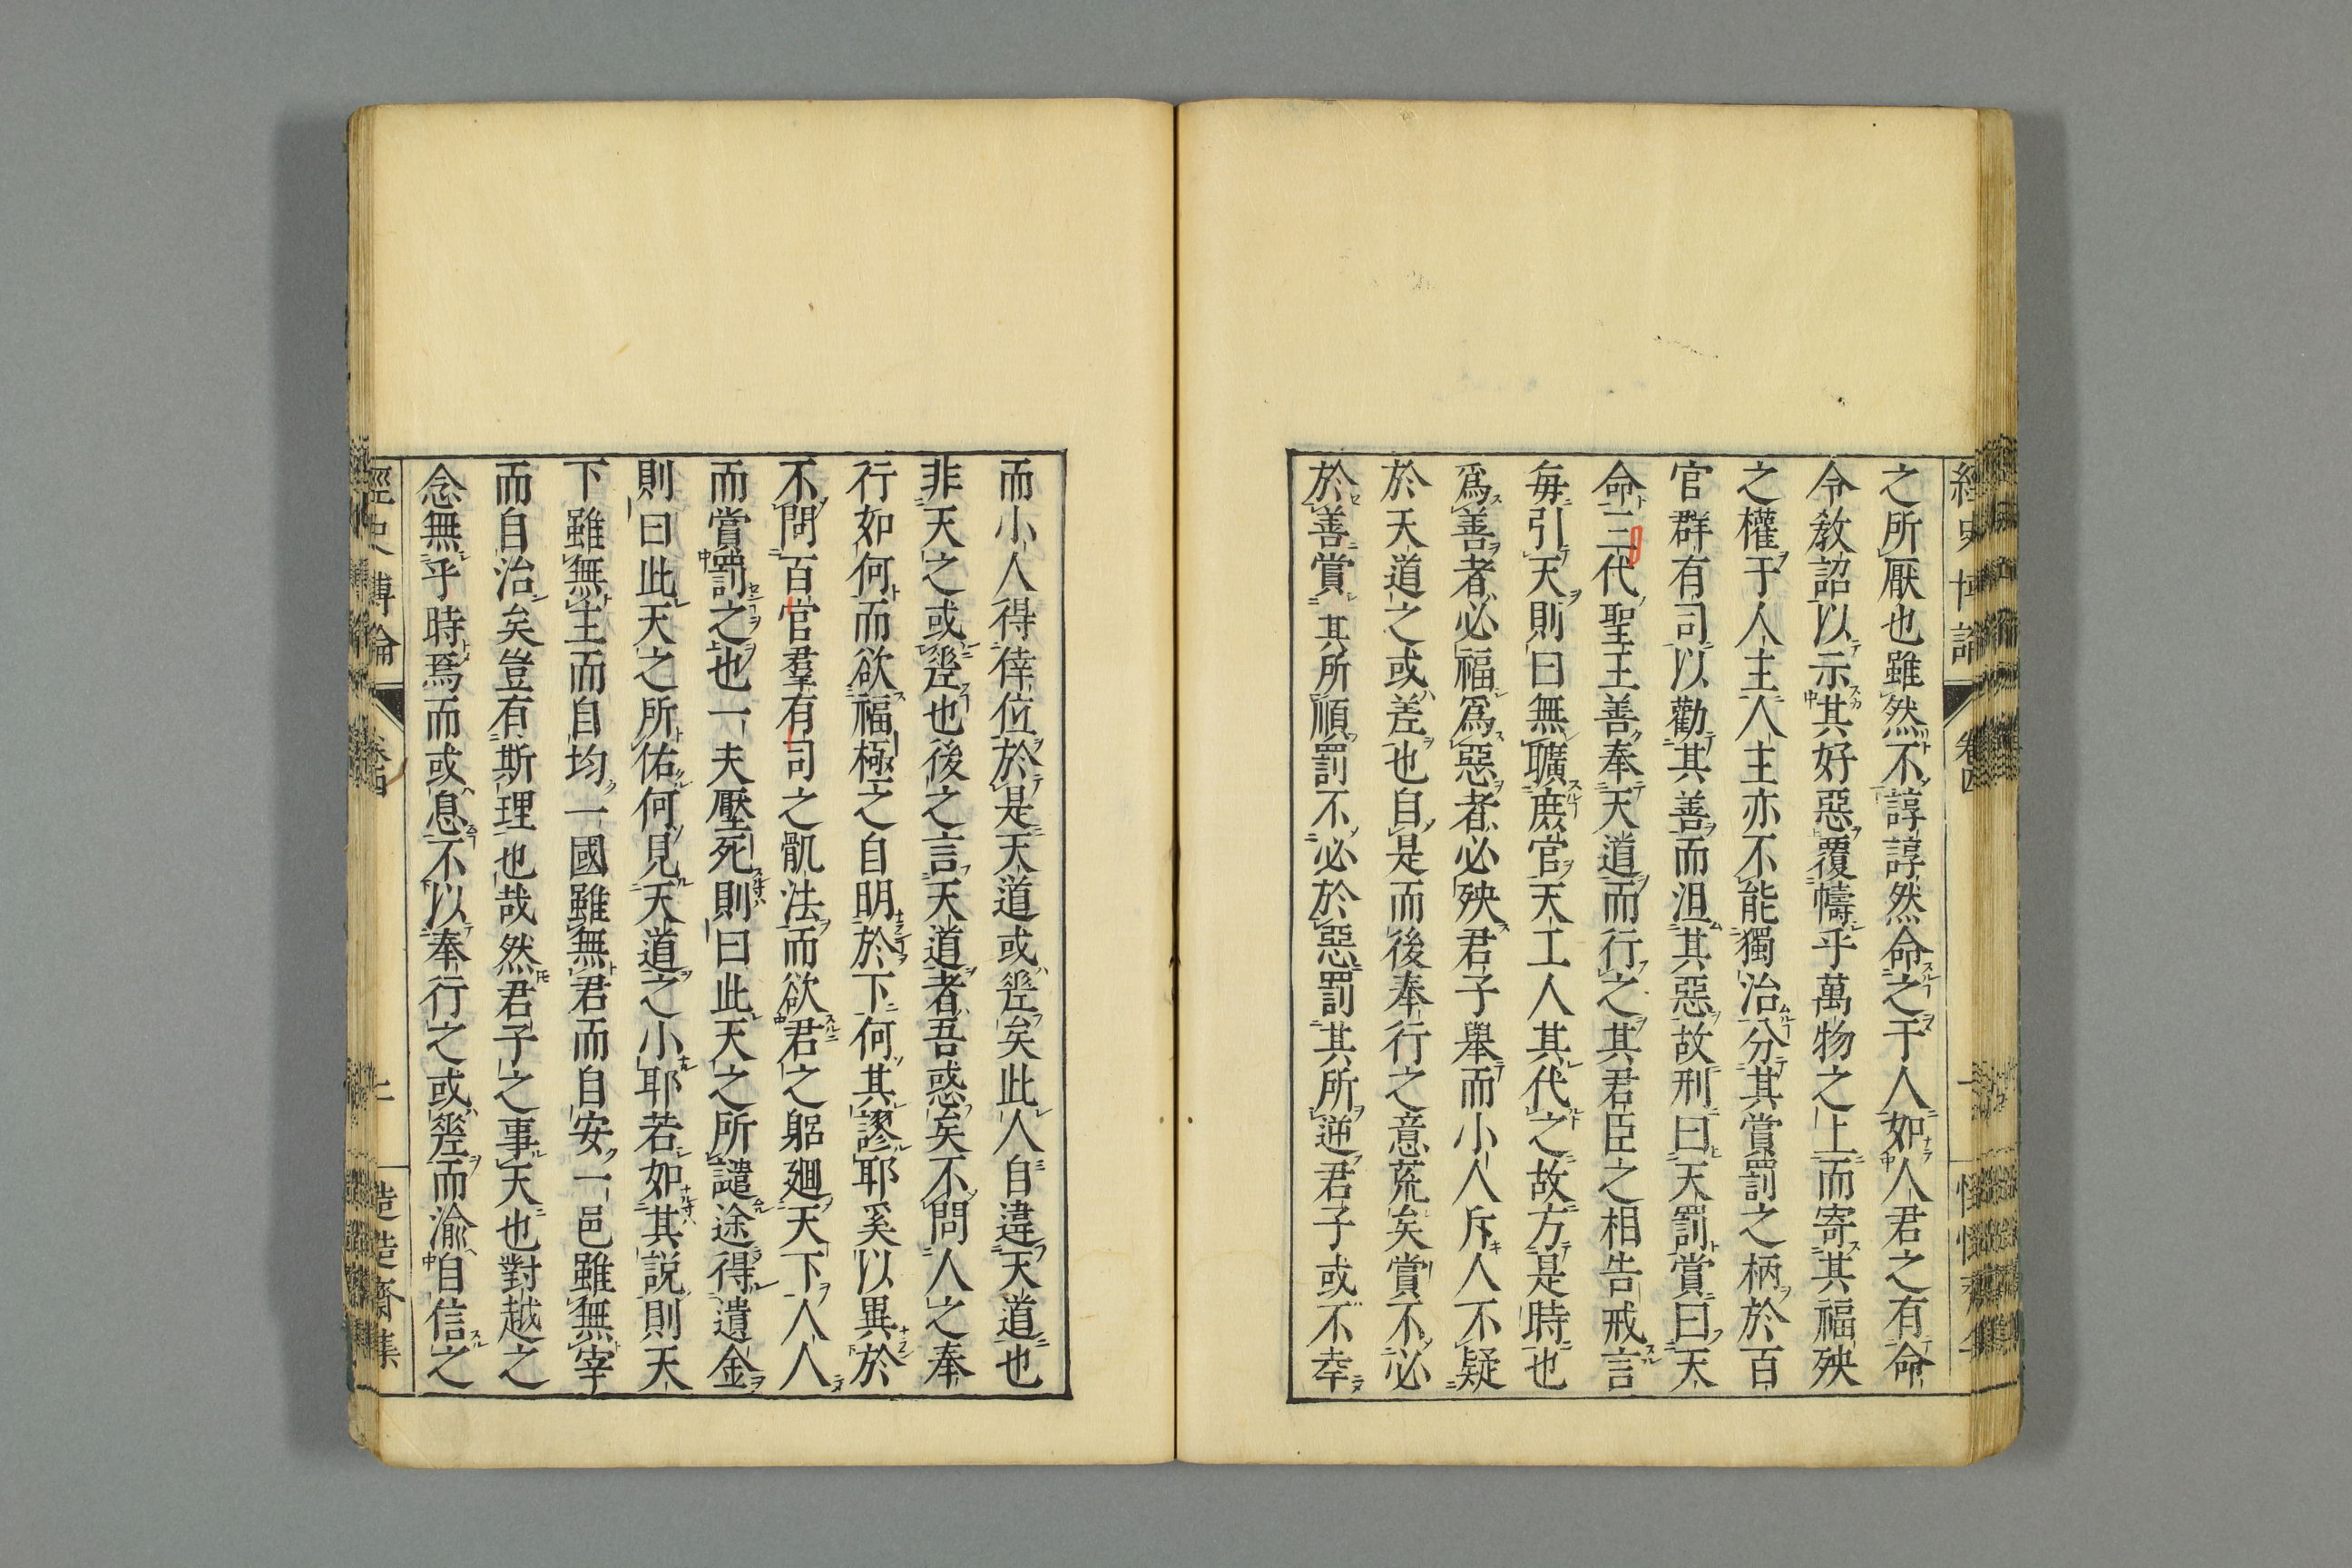 之所厭也雖然不諄諄然命之于人如人君之有命
令教詔以示其好惡覆幬乎萬物之上而寄其福殃
之權于人主人主亦不能獨治分其賞罰之柄於百
官群有司以勸其善而沮其惡故刑曰天罰賞曰天
命三代聖王善奉天道而行之其君臣之相告戒言
每引天則曰無曠庶官天工人其代之故方是時也
爲善者必福爲惡者必殃君子舉而小人斥人不疑
於天道之或差也自是而後奉行之意荒矣賞不必
於善賞其所順罰不必於惡罰其所逆君子或不幸
而小人得倖位於是天道或差矣此人自違天道也
非天之或差也後之言天道者吾惑矣不問人之奉
行如何而欲福極之自明於下何其謬耶奚以異於
不問百官羣有司之骩法而欲君之躬廻天下人人
而賞罰之也一夫壓死則曰此天之所譴途得遺金
則曰此天之所佑何見天道之小耶若如其説則天
下雖無主而自均一國雖無君而自安一邑雖無宰
而自治矣豈有斯理也哉然君子之事天也對越之
念無乎時焉而或息不以奉行之或差而渝自信之
經史博論
卷四